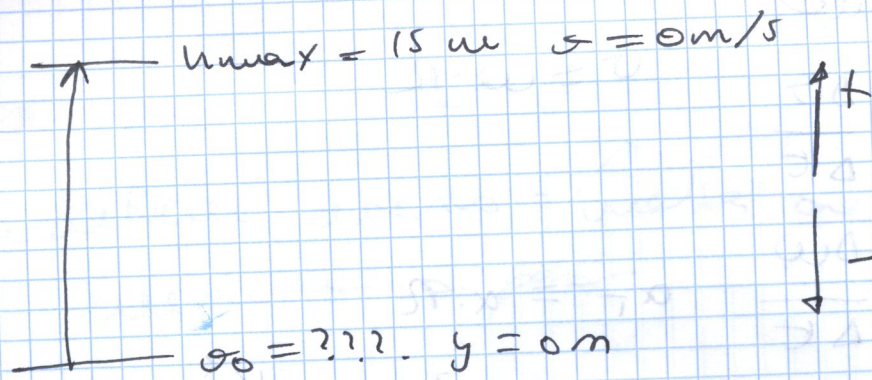 hmax = 15 m v = 0 m/s
+
-
v0 = ??? . y = 0 m